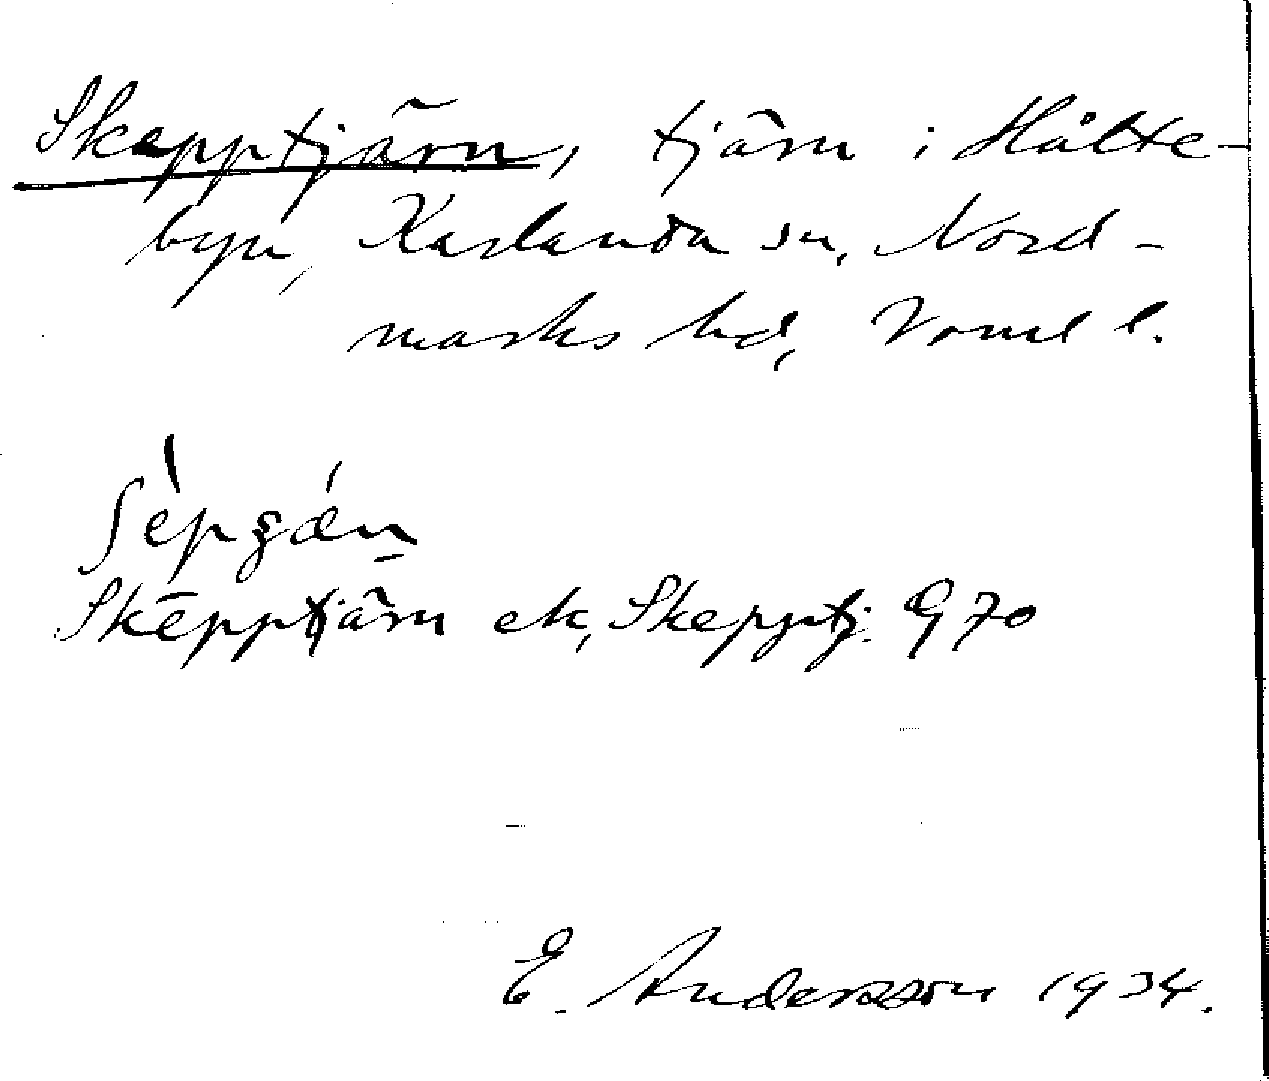 Skepptjärn, tjärn i Hålte-
byn, Karlanda sn, Nord-
marks hd, Vrml l.
ʃèpʂǽn
Skĕpptjärn ek, Skepptj. G 70
E. Andersson 1934.